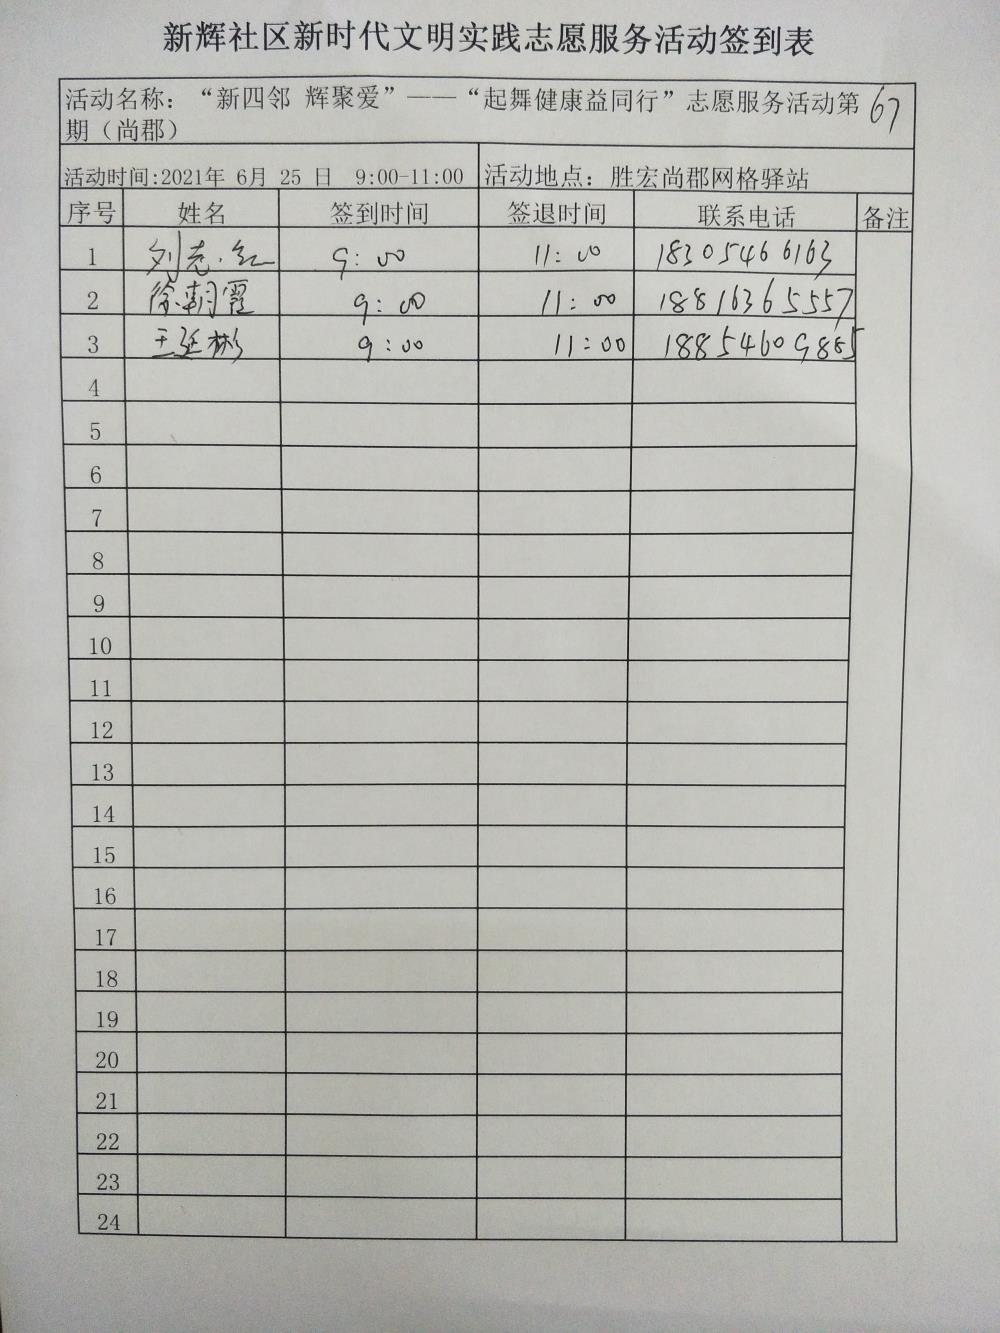 新辉社区新时代文明实践志愿服务活动签到表
活动名称：“新四邻 辉聚爱”——“起舞健康益同行”志愿服务活动第67
期（尚郡）
活动时间:2021年 6月 25 日 9:00-11:00 活动地点：胜宏尚郡网格驿站
序号 姓名 签到时间 签退时间 联系电话 备注
1 刘志红 9:00 11:00 18305466163
2 徐朝霞 9:00 11:00 18816365557
3 王延彬 9:00 11:00 18854609885
4
5
6
7
8
9
10
11
12
13
14
15
16
17
18
19
20
21
22
23
24